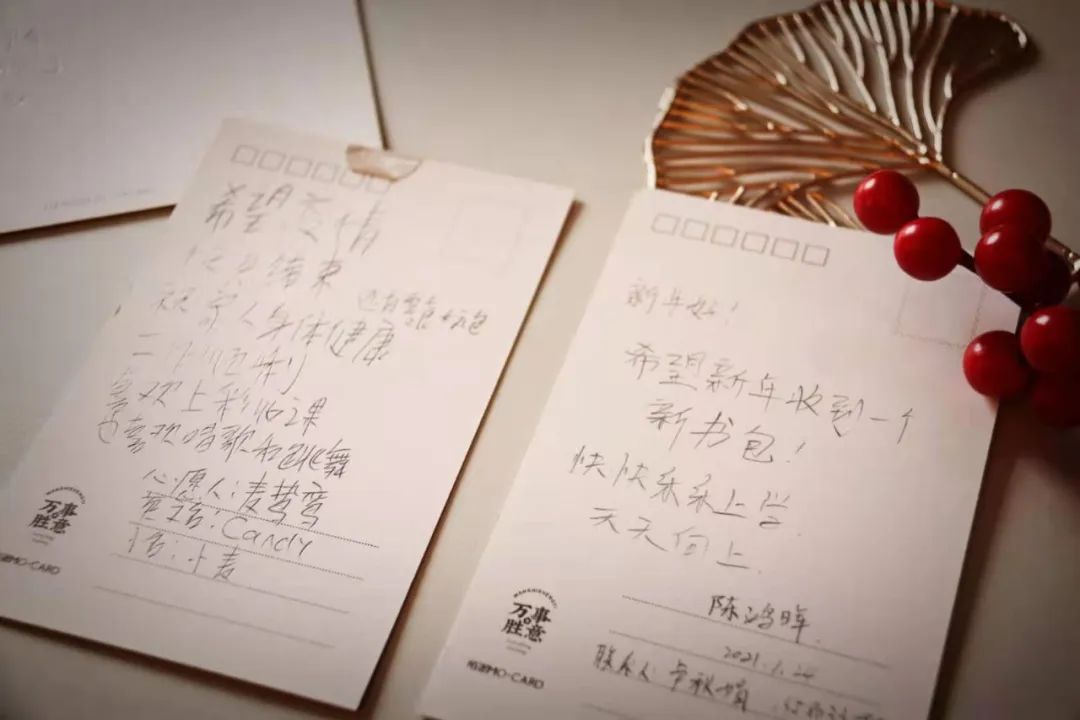 希望疫情
快点结束
祝家人身体健康
还有零食大礼包
喜欢上彩虹课
也喜欢唱歌和跳舞
心愿人:麦
英文名:Candy
小麦
万事
胜意
陌游MO-CARD
新年好!
希望新年收到一个
新书包!
快快乐乐上学.
天天向上.
陈鸿晖.
2021.1.24
联系人:
WANSHISHENGYI
万事
胜意
陌游MO-CARD